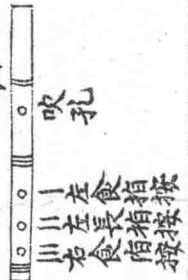 吹孔
一左食指按
二左長指按
三右食指按